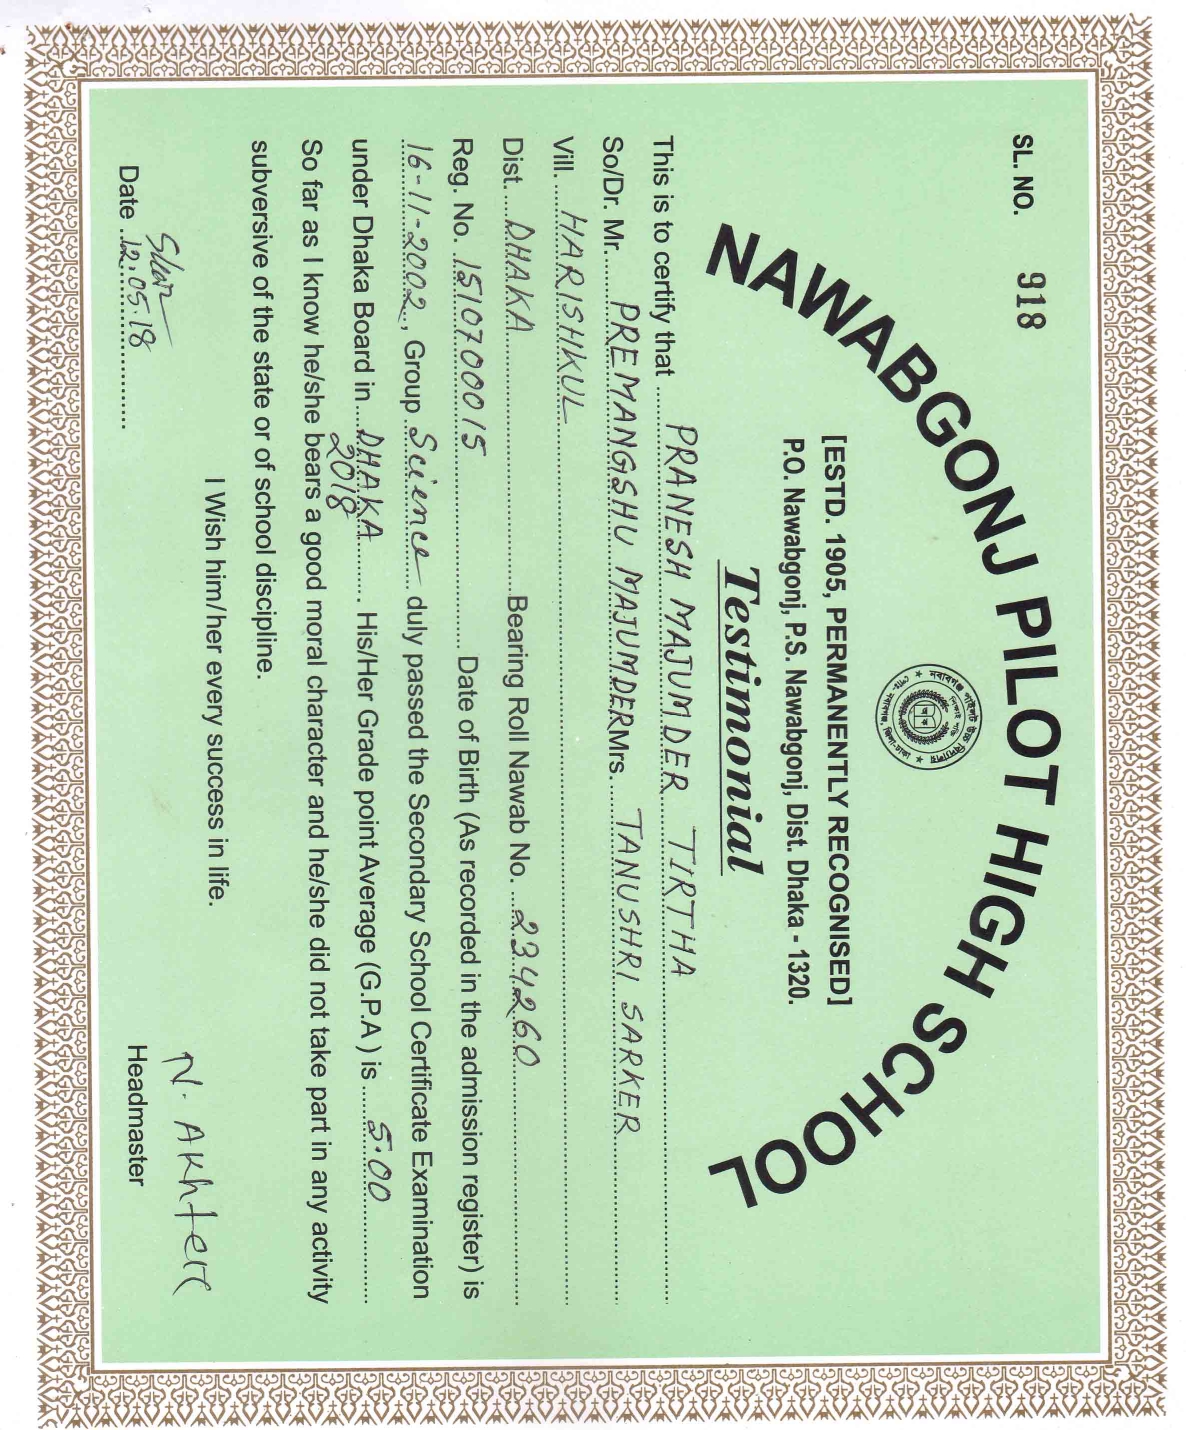 SL. NO. 918
NAWABGONJ PILOT HIGH SCHOOL
নবাবগঞ্জ পাইলট উচ্চ বিদ্যালয়
শিক্ষাই শক্তি
পোঃ- নবাবগঞ্জ, জিলা-ঢাকা
[ESTD. 1905, PERMANENTLY RECOGNISED]
P.O. Nawabgonj, P.S. Nawabgonj, Dist. Dhaka - 1320.
Testimonial
This is to certify that PRANESH MAJUMDER TIRTHA
So/Dr. Mr. PREMANGSHU MAJUMDER Mrs. TANUSHRI SARKER
Vill. HARISHKUL
Dist. DHAKA Bearing Roll Nawab No. 234260
Reg. No. 1510700015 Date of Birth (As recorded in the admission register) is
16-11-2002, Group Science duly passed the Secondary School Certificate Examination
under Dhaka Board in DHAKA. His/Her Grade point Average (G.P.A ) is 5.00
2018
So far as I know he/she bears a good moral character and he/she did not take part in any activity
subversive of the state or of school discipline.
I Wish him/her every success in life.
N. Akhter
Date 12.05.18
Headmaster